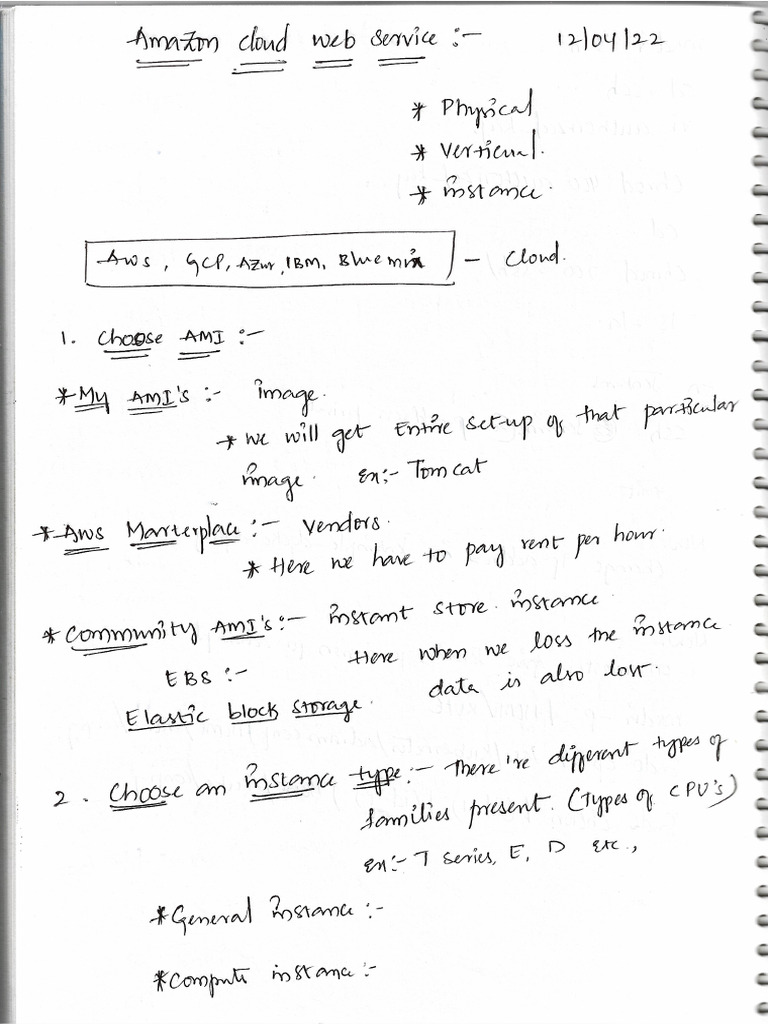 Amazon cloud web service :- 12/04/22
* Physical
* Vertical.
* instance.
Aws, GCP, Azur, IBM, Bluemix - Cloud.
1. Choose AMI :-
* My AMI's :- image.
* we will get Entire set-up of that particular
image. ex:- Tomcat
* Aws Marterplace :- Vendors.
* Here we have to pay rent per hour.
* Community AMI's :- instant store instance.
Here when we loss the instance
EBS :- data is also lost.
Elastic block storage.
2. Choose an instance type :- There're different types of
families present. (Types of CPU's)
ex:- T series, E, D etc.,
* General instance :-
* Compute instance :-